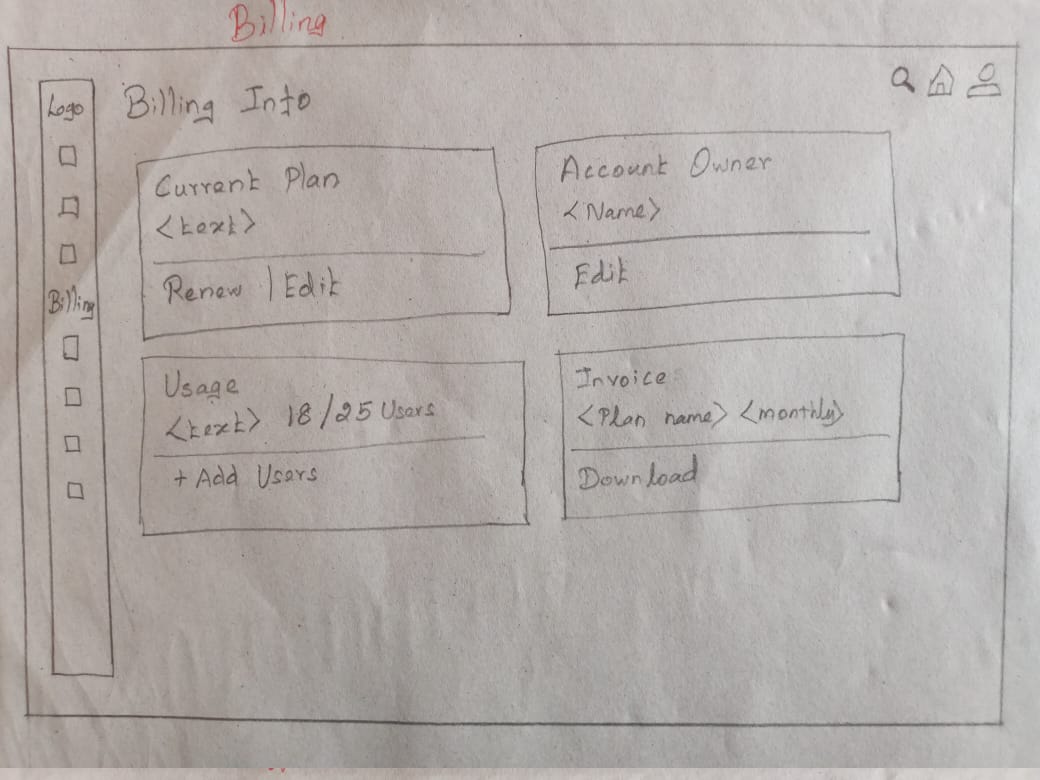 Billing
Logo
Billing Info
Current Plan
<text>
Renew | Edit
Account Owner
<Name>
Edit
Billing
Usage
<text> 18/25 Users
+ Add Users
Invoice
<Plan name> <monthly>
Download